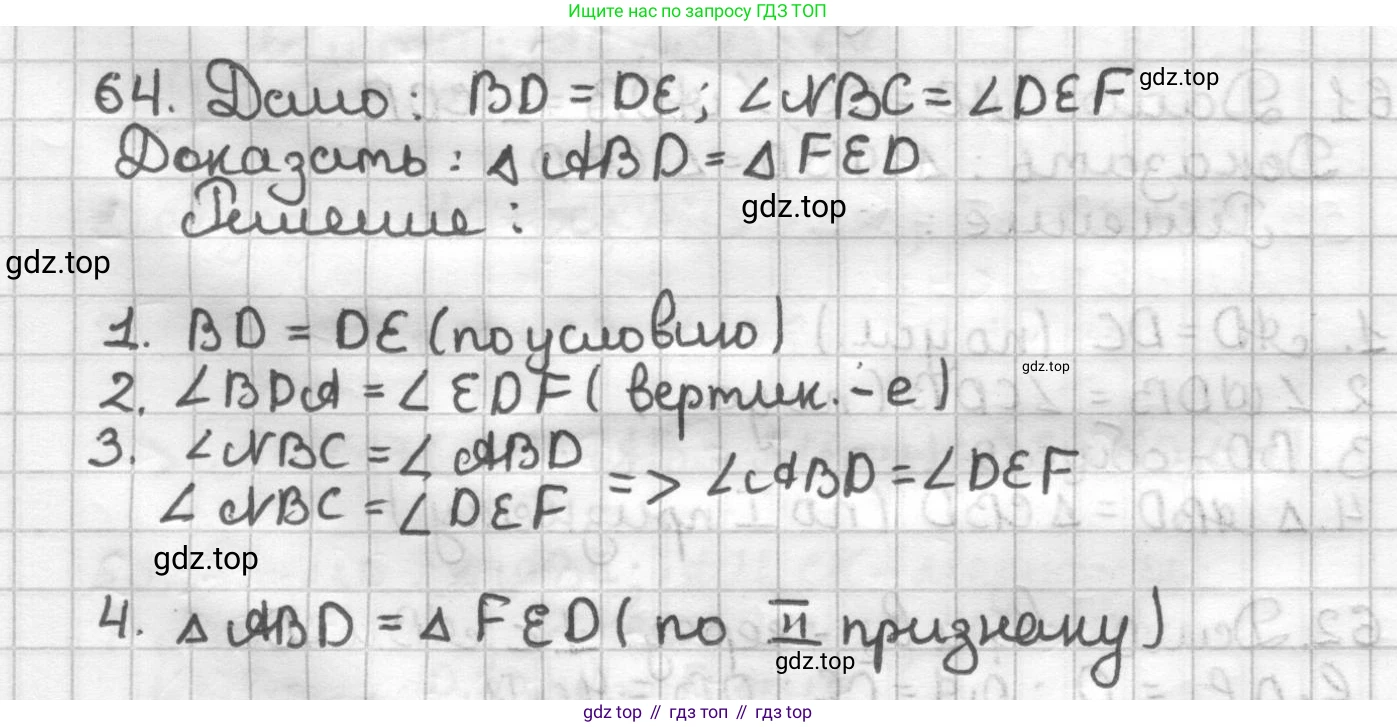 Ищите нас по запросу ГДЗ ТОП
64. Дано: BD = DE; ∠NBC = ∠DEF gdz.top
Доказать: Δ ABD = Δ FED
Решение: gdz.top
gdz.top
1. BD = DE (по условию)
2. ∠BDA = ∠EDF ( вертик.-е) gdz.top
3. ∠NBC = ∠ABD
∠NBC = ∠DEF => ∠ABD = ∠DEF
gdz.top
4. Δ ABD = Δ FED ( по II признаку)
gdz.top
gdz top // гдз топ // gdz top